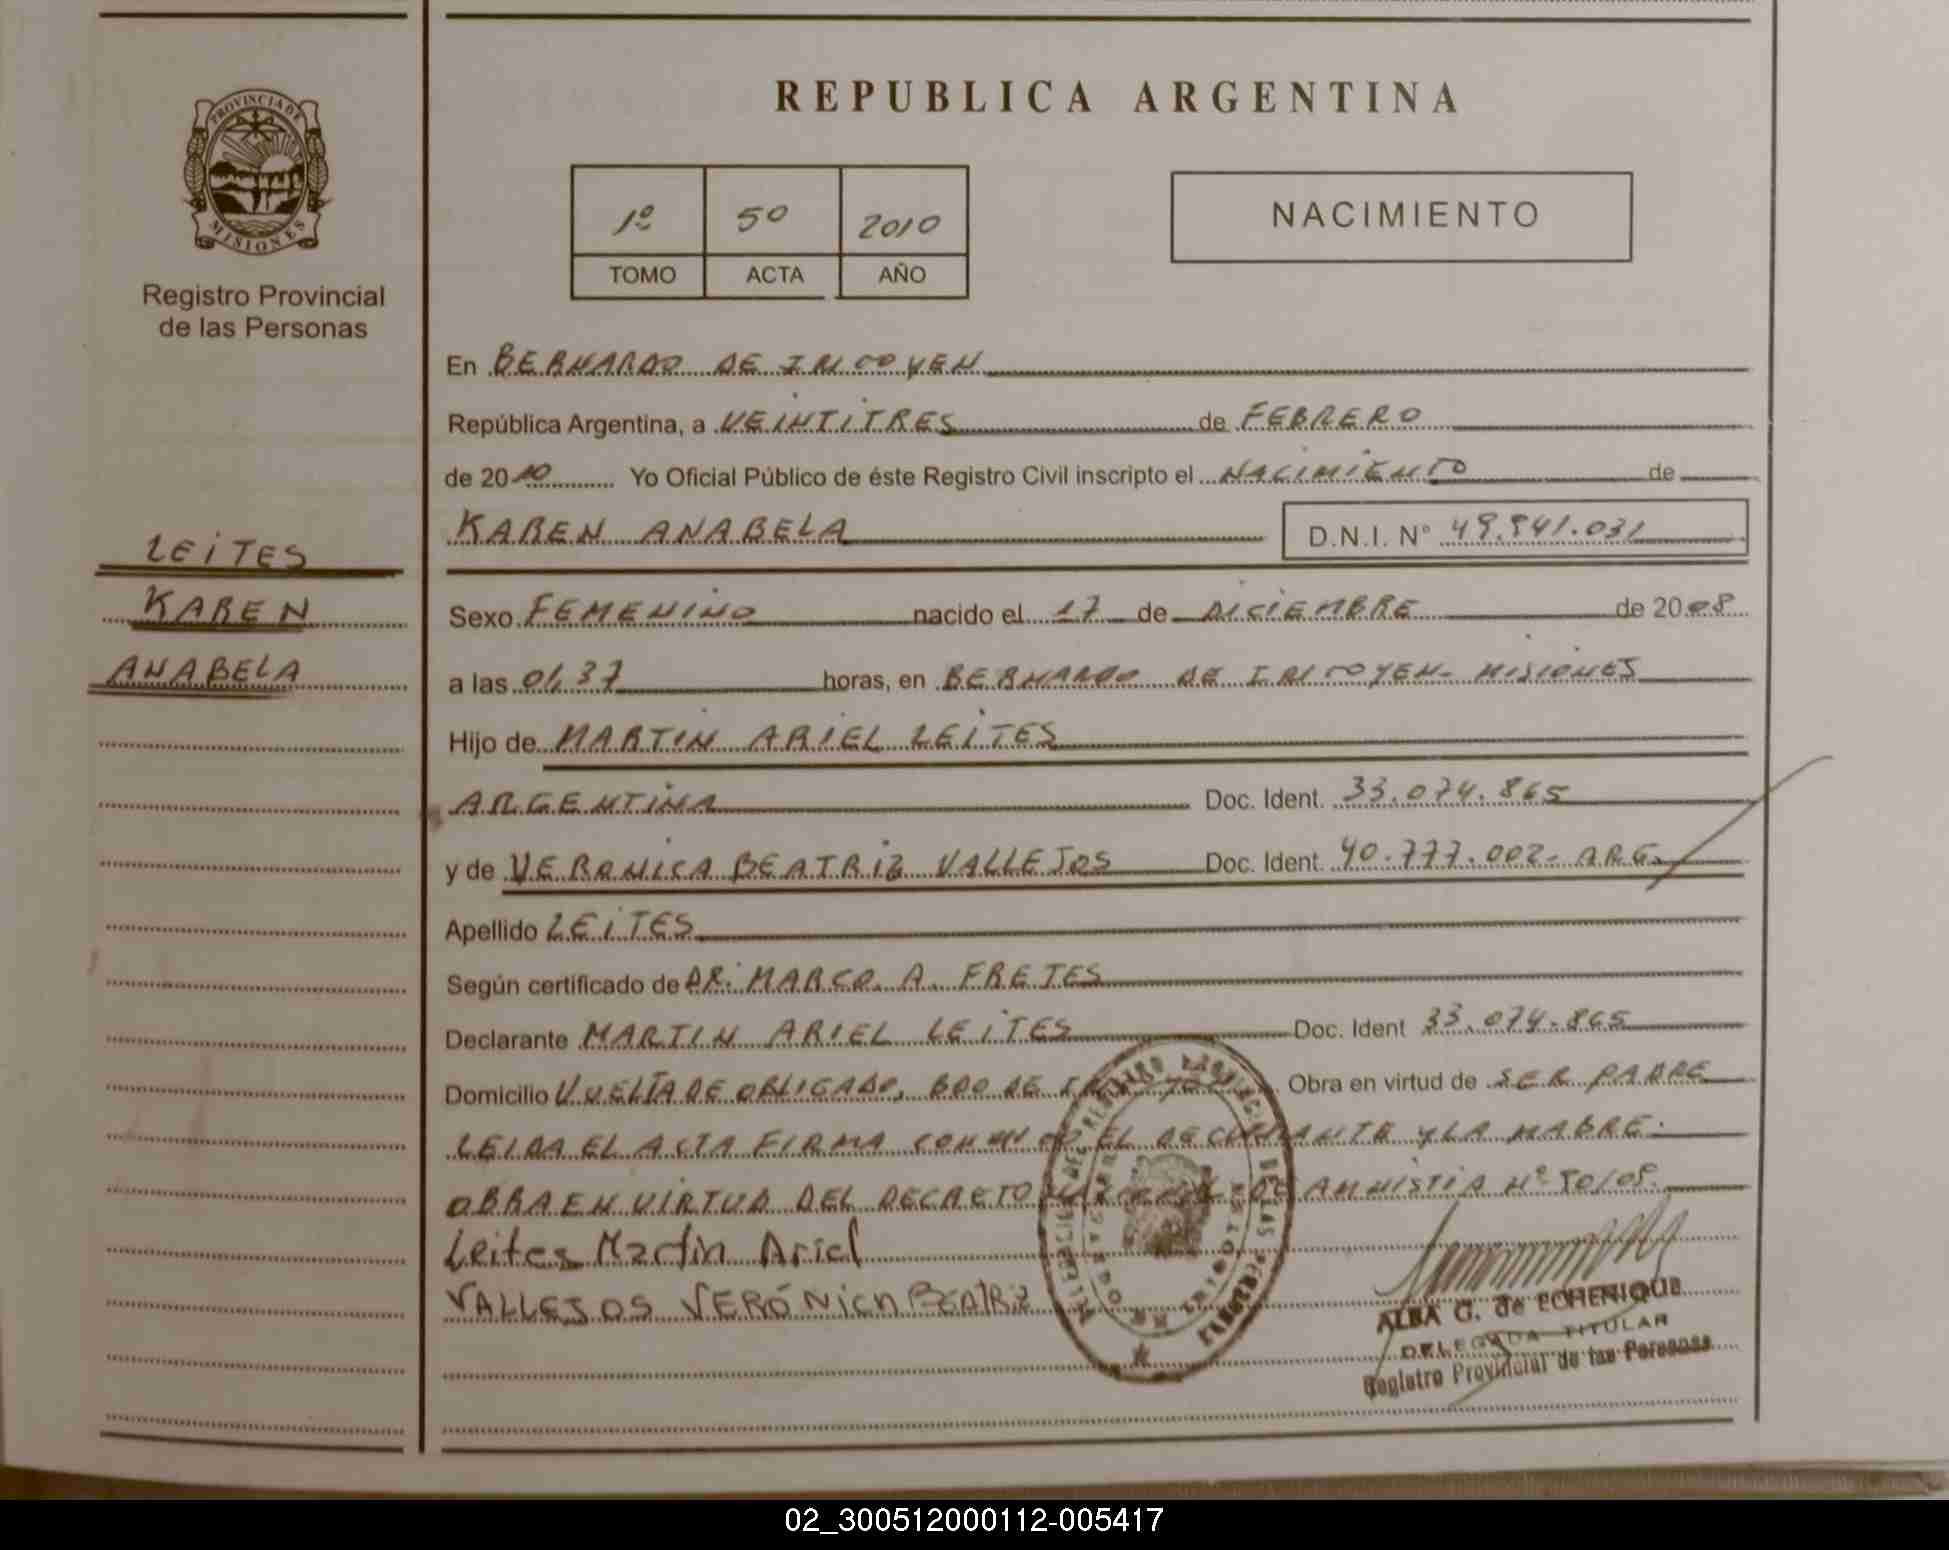 PROVINCIA DE
MISIONES
Registro Provincial
de las Personas
LEITES
KAREN
ANABELA
REPUBLICA ARGENTINA
1º 50 2010
TOMO ACTA AÑO
NACIMIENTO
En BERNARDO DE IRIGOYEN
República Argentina, a VEINTITRES de FEBRERO
de 2010 Yo Oficial Público de éste Registro Civil inscripto el NACIMIENTO de
KAREN ANABELA D.N.I. Nº 49.941.031
Sexo FEMENINO nacido el 17 de DICIEMBRE de 2008
a las 01,37 horas, en BERNARDO DE IRIGOYEN- MISIONES
Hijo de MARTIN ARIEL LEITES
ARGENTINA Doc. Ident. 33.074.865
y de VERONICA BEATRIZ VALLEJOS Doc. Ident. 40.777.002- ARG.
Apellido LEITES
Según certificado de DR. MARCO. A. FRETES
Declarante MARTIN ARIEL LEITES Doc. Ident 33.074.865
Domicilio VUELTA DE OBLIGADO, BDO DE Obra en virtud de SER PADRE
LEIDA EL ACTA FIRMA CONMIGO EL DECLARANTE Y LA MADRE.
OBRA EN VIRTUD DEL DECRETO DE AMNISTIA Nº 90/09.
Leites Martin Ariel
VALLEJOS VERÓNICA BEATRIZ
ALBA G. de ECHENIQUE
DELEGADA TITULAR
Registro Provincial de las Personas
02_300512000112-005417